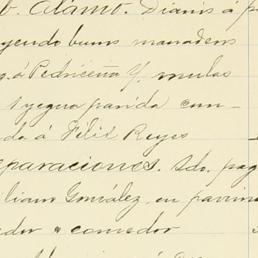 b. Alamo. Diams á p
yendo buns manadens
g. á Pedriceña y mulas
1 yegua parida cun-
da á Félix Reyes
eparaciones. Ido. pag
liam González, en pavim
edor e comedor